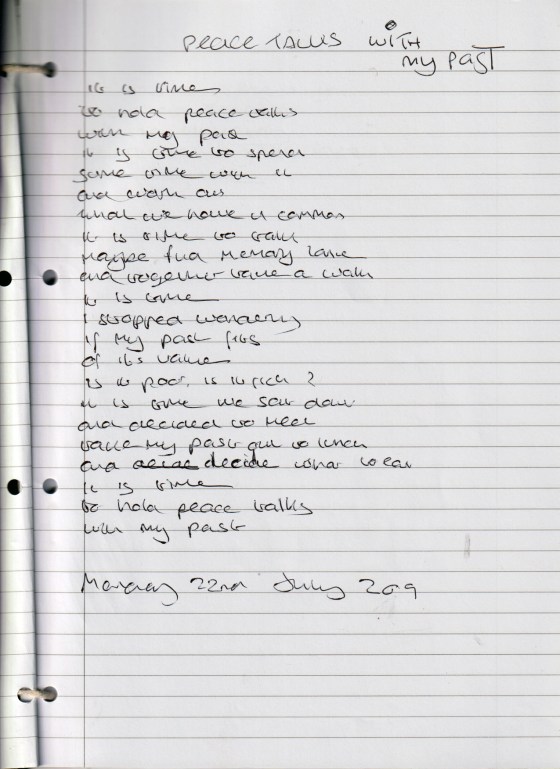 PEACE TALKS WITH
MY PAST
it is time
to hold peace talks
with my past
it is time to spend
some time with it
and work out
what we have in common
it is time to talk
maybe find memory lane
and together take a walk
it is time
I stopped wondering
if my past
of its value
is it poor, is it rich?
it is time we sat down
and decided to meet
take my past out to lunch
and decide what to eat
it is time
to hold peace talks
with my past
Monday 22nd July 2019